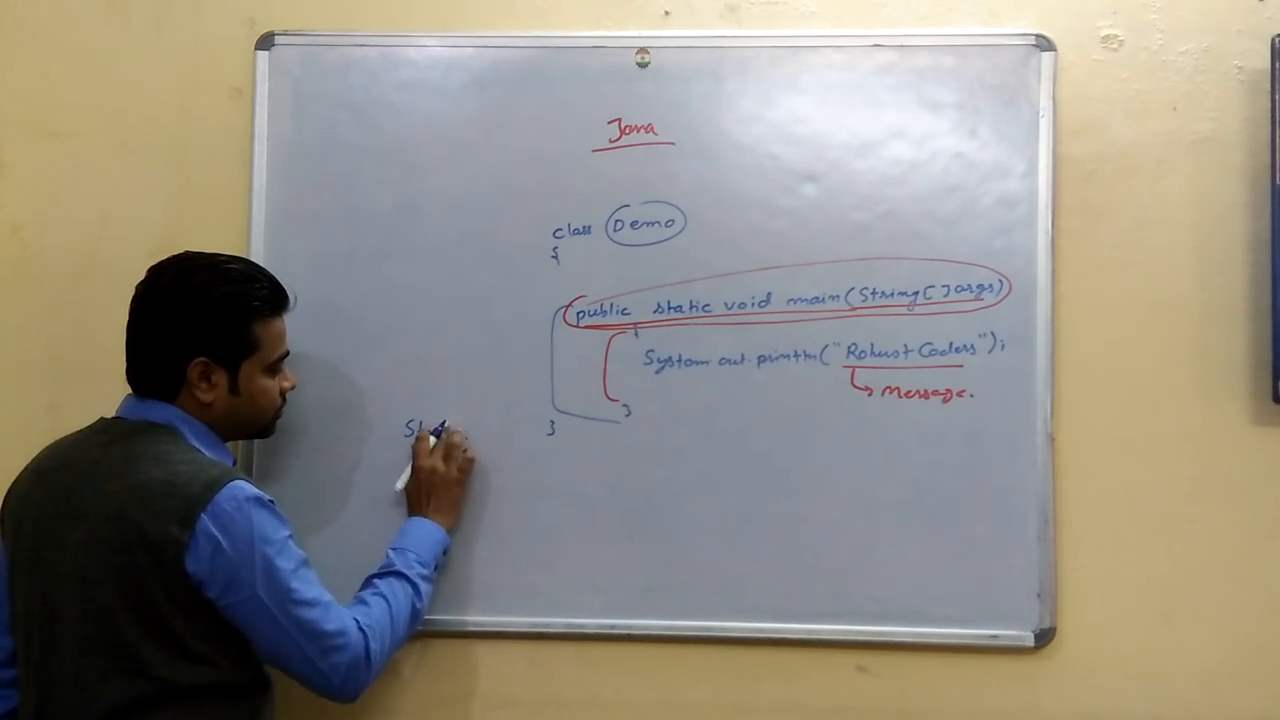 Java
class Demo
{
public static void main(String[]args)
{
System.out.println("Robust Coders");
Message.
}
}
St